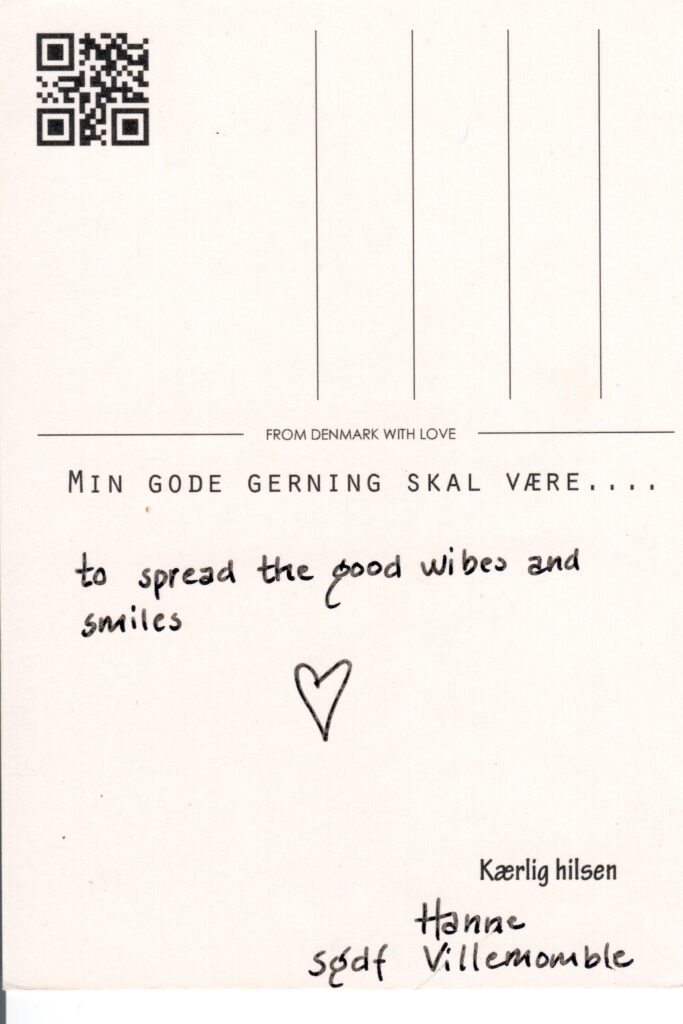 FROM DENMARK WITH LOVE
MIN GODE GERNING SKAL VÆRE....
to spread the good wibes and
smiles
Kærlig hilsen
Hanne
sgdf Villemomble